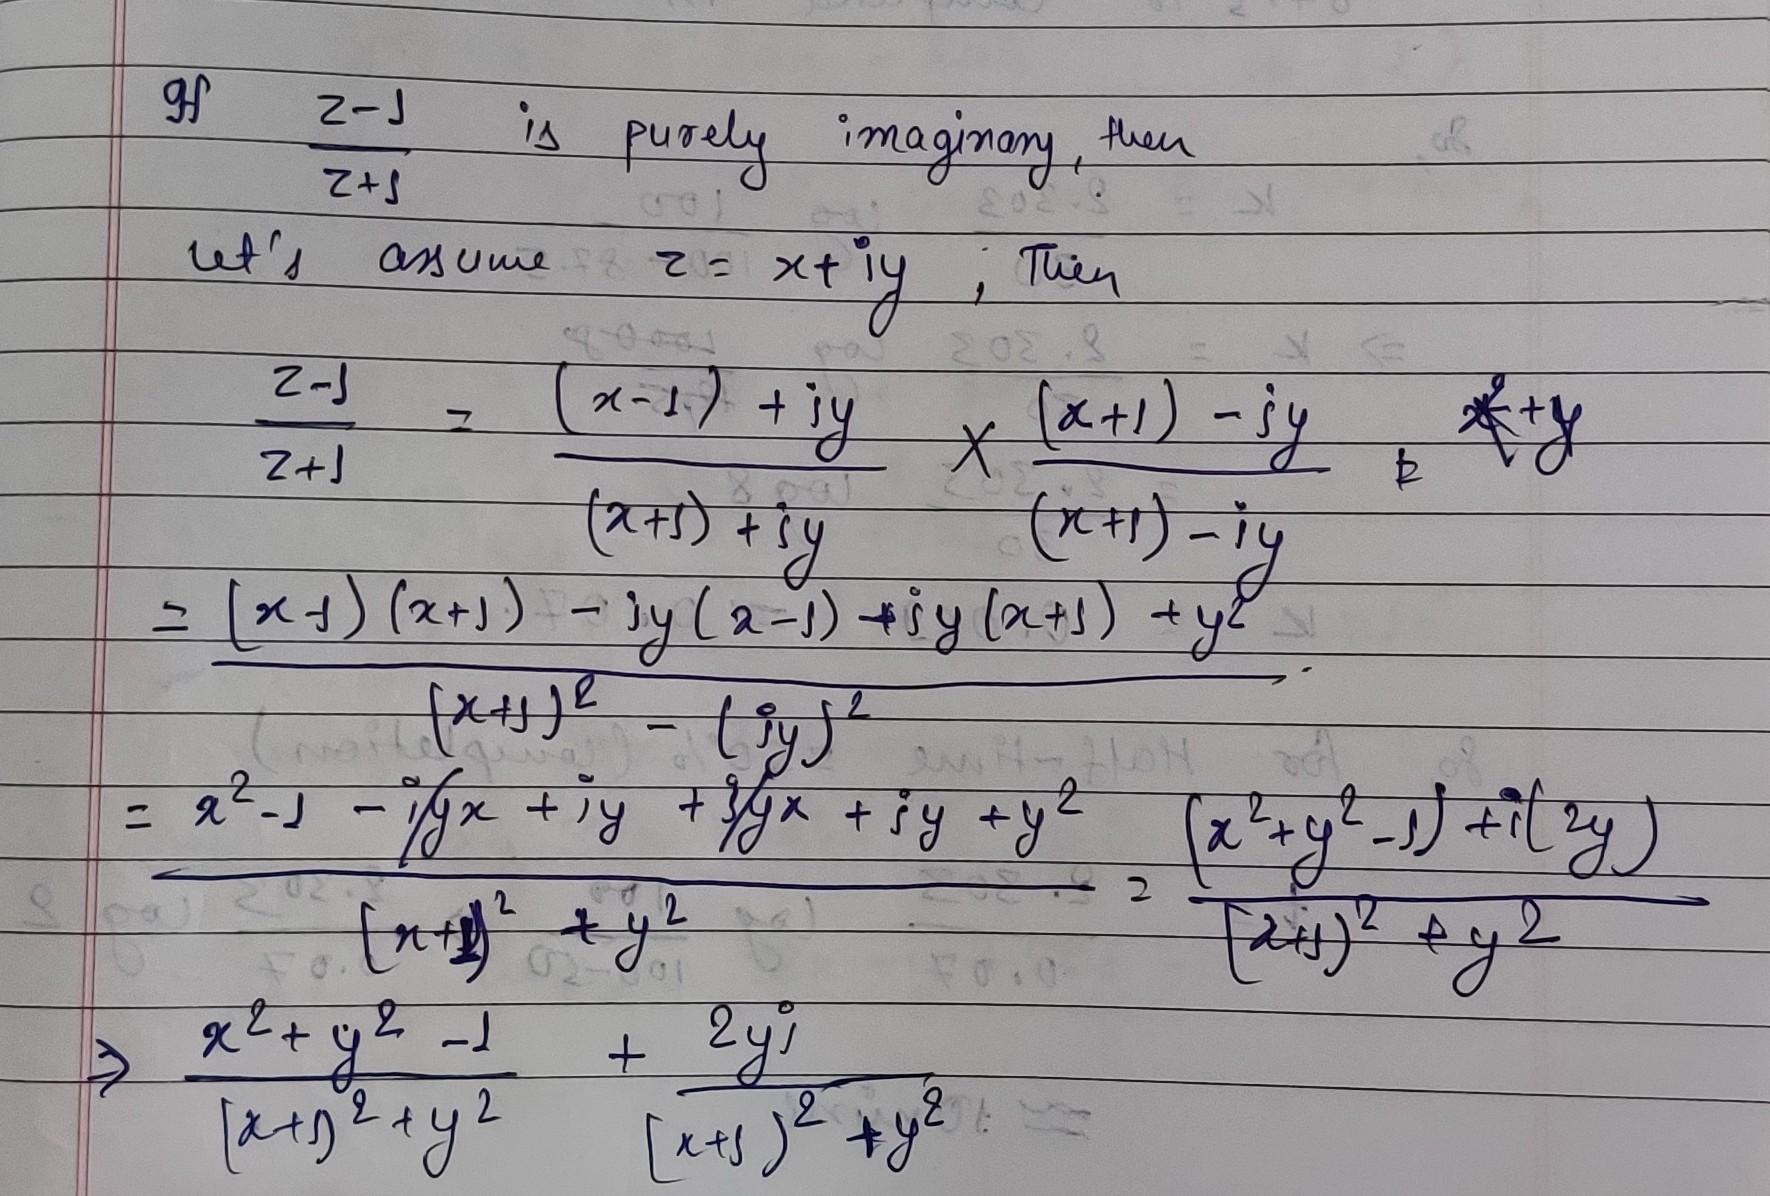 If (z-1)/(z+1) is purely imaginary, then
let's assume z = x+iy ; Then
(z-1)/(z+1) = ((x-1)+iy)/((x+1)+iy) × ((x+1)-iy)/((x+1)-iy)
= ((x-1)(x+1) - iy(x-1) + iy(x+1) + y²)/((x+1)² - (iy)²)
= (x²-1 - iyx + iy + iyx + iy + y²)/((x+1)² + y²) = ((x²+y²-1) + i(2y))/((x+1)² + y²)
⇒ (x²+y²-1)/((x+1)²+y²) + 2yi/((x+1)²+y²)